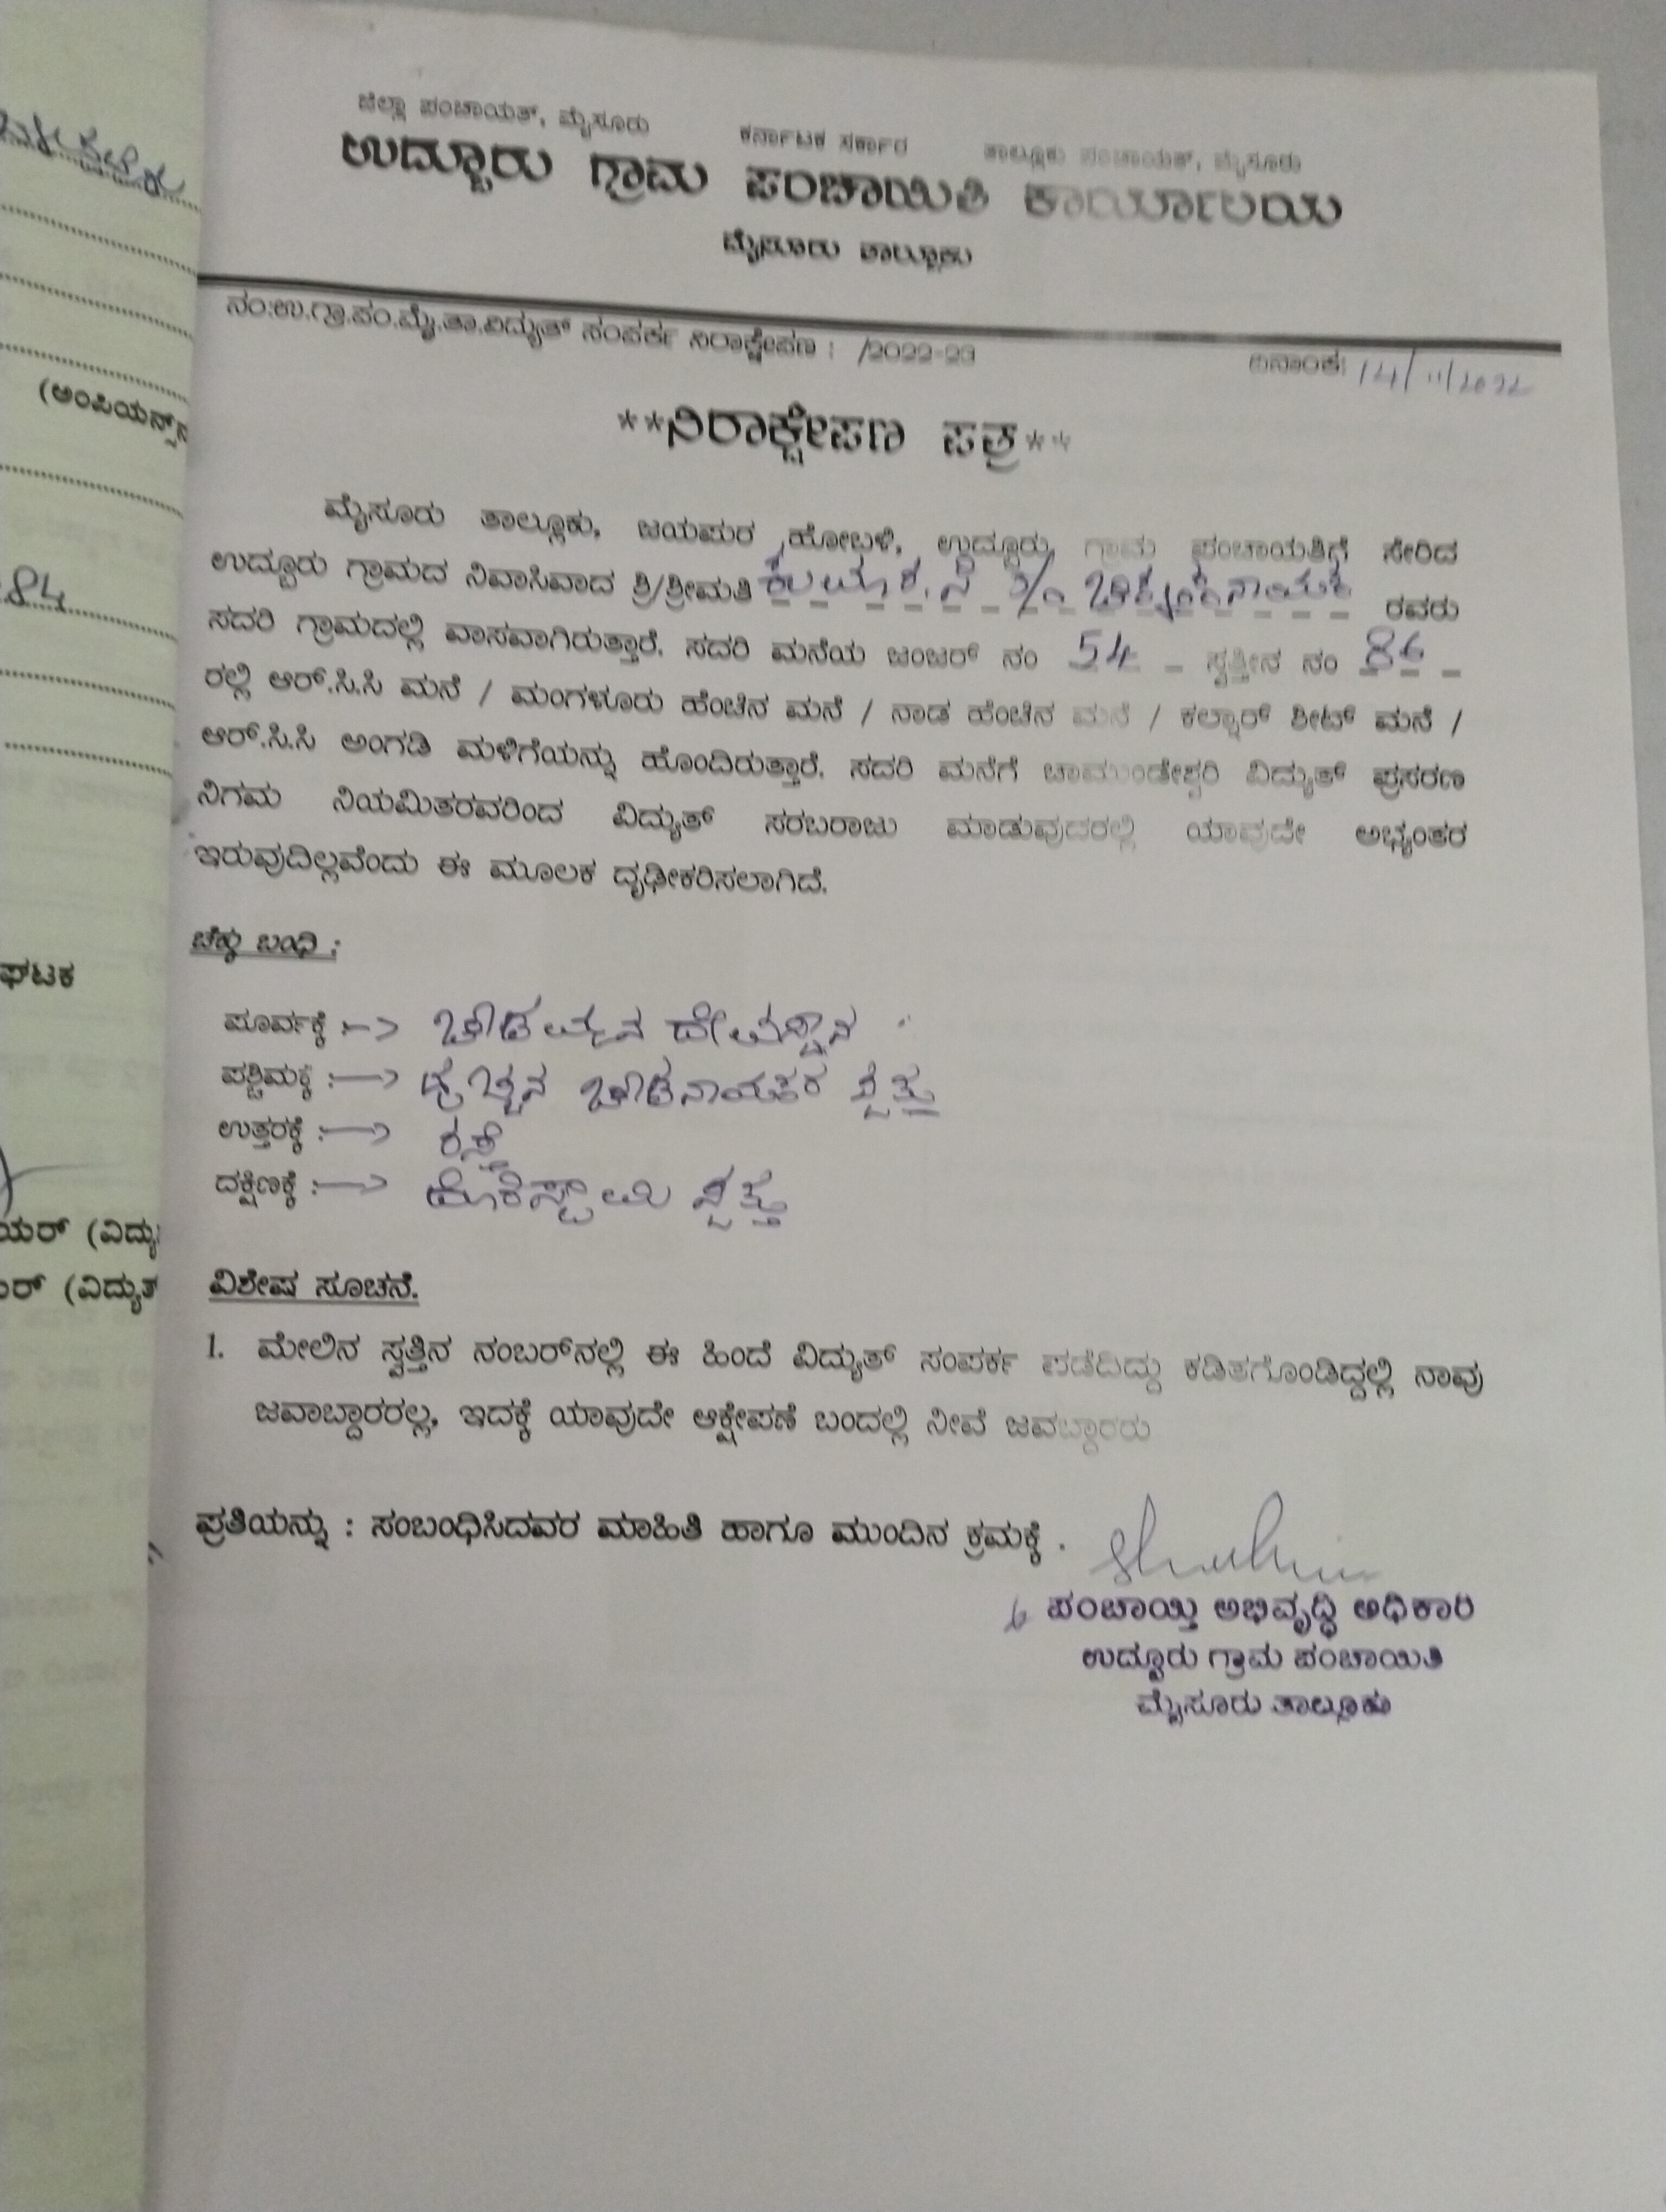 ಜಿಲ್ಲಾ ಪಂಚಾಯತ್, ಮೈಸೂರು ಕರ್ನಾಟಕ ಸರ್ಕಾರ ತಾಲ್ಲೂಕು ಪಂಚಾಯತ್, ಮೈಸೂರು
ಉದ್ಬೂರು ಗ್ರಾಮ ಪಂಚಾಯಿತಿ ಕಾರ್ಯಾಲಯ
ಮೈಸೂರು ತಾಲ್ಲೂಕು
ನಂ:ಉ.ಗ್ರಾ.ಪಂ.ಮೈ.ತಾ.ವಿದ್ಯುತ್ ಸಂಪರ್ಕ ನಿರಾಕ್ಷೇಪಣ : /2022-23 ದಿನಾಂಕ: 14/11/2022
**ನಿರಾಕ್ಷೇಪಣ ಪತ್ರ**
ಮೈಸೂರು ತಾಲ್ಲೂಕು, ಜಯಪುರ ಹೋಬಳಿ, ಉದ್ಬೂರು ಗ್ರಾಮ ಪಂಚಾಯತಿಗೆ ಸೇರಿದ
ಉದ್ಬೂರು ಗ್ರಾಮದ ನಿವಾಸಿವಾದ ಶ್ರಿ/ಶ್ರೀಮತಿ ರವರು
ಸದರಿ ಗ್ರಾಮದಲ್ಲಿ ವಾಸವಾಗಿರುತ್ತಾರೆ. ಸದರಿ ಮನೆಯ ಜಂಜರ್ ನಂ 54 ಸ್ವತ್ತೀನ ನಂ 86
ರಲ್ಲಿ ಆರ್.ಸಿ.ಸಿ ಮನೆ / ಮಂಗಳೂರು ಹೆಂಚಿನ ಮನೆ / ನಾಡ ಹೆಂಚಿನ ಮನೆ / ಕಲ್ನಾರ್ ಶೀಟ್ ಮನೆ /
ಆರ್.ಸಿ.ಸಿ ಅಂಗಡಿ ಮಳಿಗೆಯನ್ನು ಹೊಂದಿರುತ್ತಾರೆ. ಸದರಿ ಮನೆಗೆ ಚಾಮುಂಡೇಶ್ವರಿ ವಿದ್ಯುತ್ ಪ್ರಸರಣ
ನಿಗಮ ನಿಯಮಿತರವರಿಂದ ವಿದ್ಯುತ್ ಸರಬರಾಜು ಮಾಡುವುದರಲ್ಲಿ ಯಾವುದೇ ಅಭ್ಯಂತರ
ಇರುವುದಿಲ್ಲವೆಂದು ಈ ಮೂಲಕ ದೃಢೀಕರಿಸಲಾಗಿದೆ.
ಚೆಕ್ಕು ಬಂಧಿ :
ಪೂರ್ವಕ್ಕೆ :-> ದೇವಸ್ಥಾನ
ಪಶ್ಚಿಮಕ್ಕೆ :-> ಸ್ವತ್ತು
ಉತ್ತರಕ್ಕೆ :-> ರಸ್ತೆ
ದಕ್ಷಿಣಕ್ಕೆ :-> ಸ್ವತ್ತು
ವಿಶೇಷ ಸೂಚನೆ.
1. ಮೇಲಿನ ಸ್ವತ್ತಿನ ನಂಬರ್‌ನಲ್ಲಿ ಈ ಹಿಂದೆ ವಿದ್ಯುತ್ ಸಂಪರ್ಕ ಪಡೆದಿದ್ದು ಕಡಿತಗೊಂಡಿದ್ದಲ್ಲಿ ನಾವು
ಜವಾಬ್ದಾರರಲ್ಲ, ಇದಕ್ಕೆ ಯಾವುದೇ ಆಕ್ಷೇಪಣೆ ಬಂದಲ್ಲಿ ನೀವೆ ಜವಬ್ದಾರರು
ಪ್ರತಿಯನ್ನು : ಸಂಬಂಧಿಸಿದವರ ಮಾಹಿತಿ ಹಾಗೂ ಮುಂದಿನ ಕ್ರಮಕ್ಕೆ .
ಪಂಚಾಯ್ತಿ ಅಭಿವೃದ್ಧಿ ಅಧಿಕಾರಿ
ಉದ್ಬೂರು ಗ್ರಾಮ ಪಂಚಾಯಿತಿ
ಮೈಸೂರು ತಾಲ್ಲೂಕು
84
ಘಟಕ
(ವಿದ್ಯು
(ವಿದ್ಯುತ್